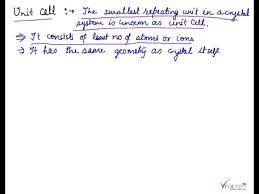 Unit Cell :→ The smallest repeating unit in a crystal
system is known as unit cell.
⇒ It consists of least no of atoms or ions
→ It has the same geometry as crystal itself